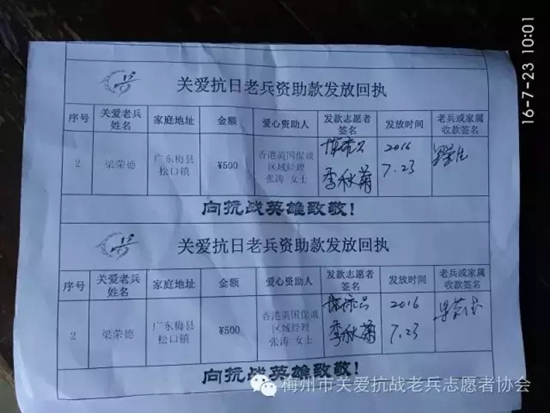 16-7-23 10:01
关爱抗日老兵资助款发放回执
序号 关爱老兵姓名 家庭地址 金额 爱心资助人 发款志愿者签名 发放时间 老兵或家属收款签名
2 梁荣德 广东梅县松口镇 ¥500 香港英国保诚区域经理张涛 女士 李秋菊 2016 7.23
向抗战英雄致敬!
关爱抗日老兵资助款发放回执
序号 关爱老兵姓名 家庭地址 金额 爱心资助人 发款志愿者签名 发放时间 老兵或家属收款签名
2 梁荣德 广东梅县松口镇 ¥500 香港英国保诚区域经理张涛 女士 李秋菊 2016 7.23 梁荣德
向抗战英雄致敬!
梅州市关爱抗战老兵志愿者协会